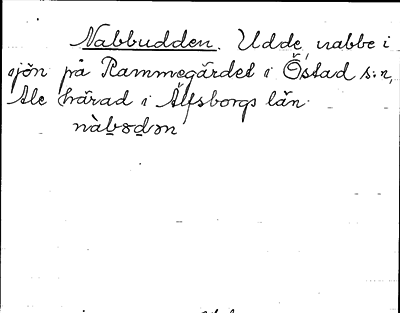 Nabbudden. Udde, nabbe i
sjön på Rammegärdet i Östad s:n,
Ale härad i Älfsborgs län.
nàbədən